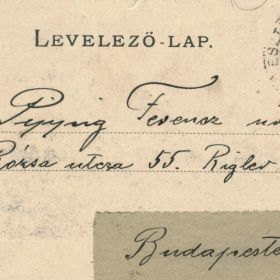 LEVELEZŐ-LAP.
Ferencz
Rózsa utcza 55. Riglev
Budapesten